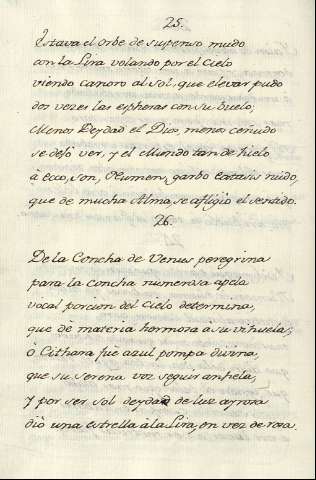 25.
Estava el orbe de suspenso mudo
con la Lira volando por el Cielo
viendo canoro al sol, que elevar pudo
dos vezes las espheras con su buelo;
Menos Deydad el Dios, menos ceñudo
se dejó ver, y el Mundo tan de hielo
à Ecco, son, Numen, garbo extasis nudo,
que de mucha Alma, se afligio el sentido.
26.
De la Concha de Venus peregrina
para la concha numerosa apela
vocal porcion del Cielo determina,
que dè materia hermosa à su vihuela;
ò Cithara fuè azul pompa divina,
que su serena voz seguir anhela,
y por ser sol deydad de luz ayrosa
diò una estrella à la Lira, en vez de rosa.